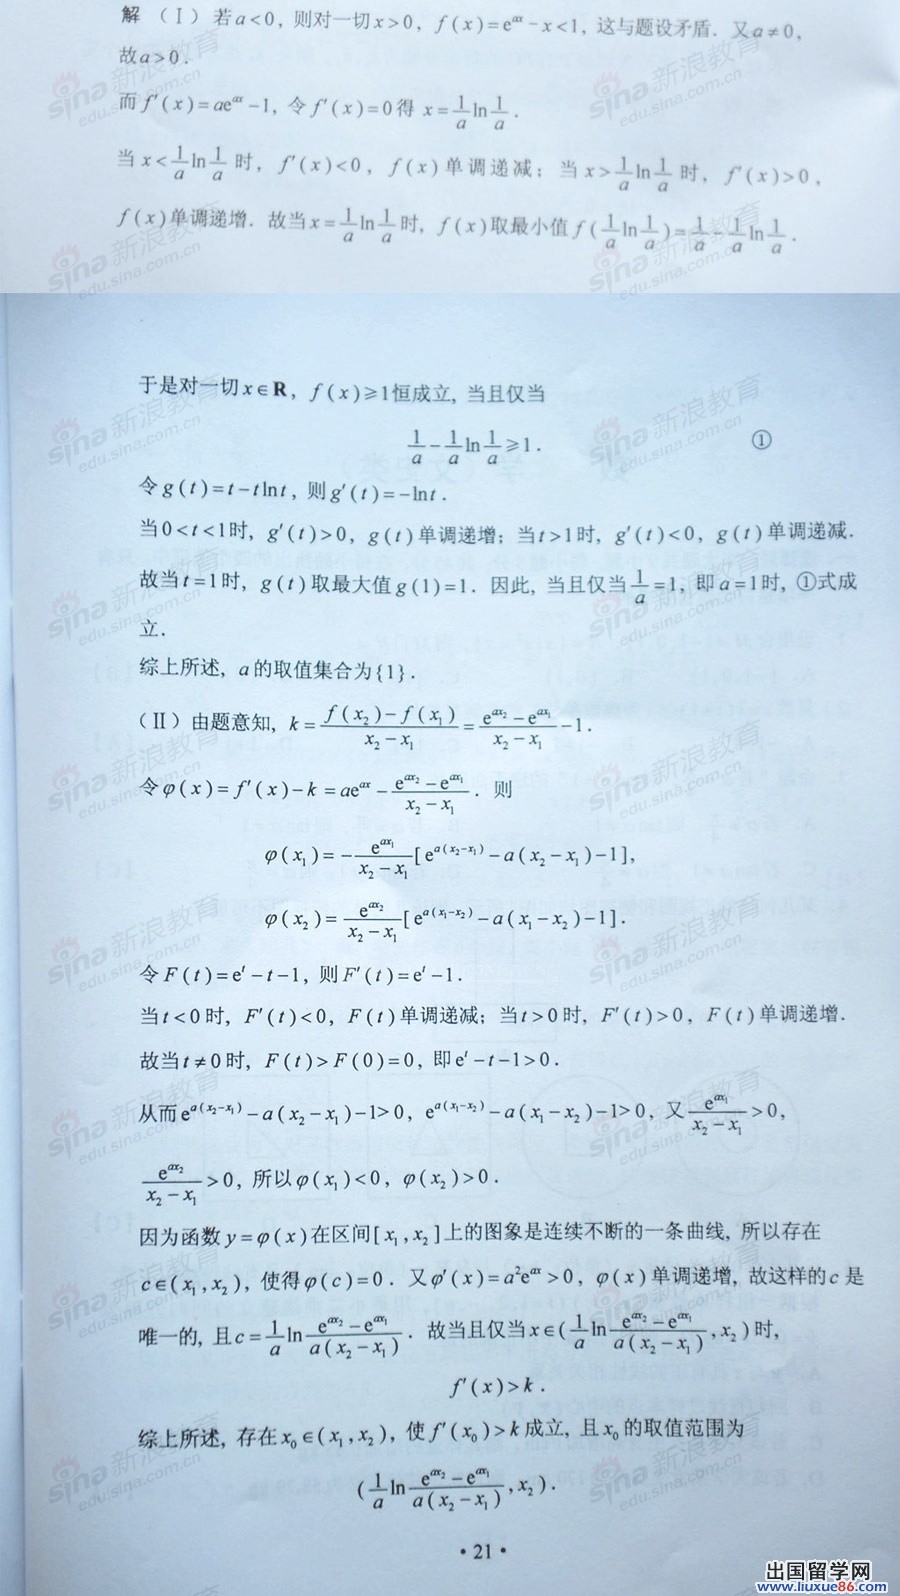 解 (Ⅰ) 若a<0, 则对一切x>0, f(x)=e^{ax}-x<1, 这与题设矛盾. 又a≠0,
故a>0.
而f′(x)=ae^{ax}-1, 令f′(x)=0得 x=\frac{1}{a}ln\frac{1}{a}.
当x<\frac{1}{a}ln\frac{1}{a}时, f′(x)<0, f(x)单调递减; 当x>\frac{1}{a}ln\frac{1}{a}时, f′(x)>0,
f(x)单调递增. 故当x=\frac{1}{a}ln\frac{1}{a}时, f(x)取最小值f(\frac{1}{a}ln\frac{1}{a})=\frac{1}{a}-\frac{1}{a}ln\frac{1}{a}.
于是对一切x∈R, f(x)≥1恒成立, 当且仅当
\frac{1}{a}-\frac{1}{a}ln\frac{1}{a}≥1. ①
令g(t)=t-tlnt, 则g′(t)=-lnt.
当0<t<1时, g′(t)>0, g(t)单调递增; 当t>1时, g′(t)<0, g(t)单调递减.
故当t=1时, g(t)取最大值g(1)=1. 因此, 当且仅当\frac{1}{a}=1, 即a=1时, ①式成
立.
综上所述, a的取值集合为{1}.
(Ⅱ) 由题意知, k=\frac{f(x_2)-f(x_1)}{x_2-x_1}=\frac{e^{ax_2}-e^{ax_1}}{x_2-x_1}-1.
令φ(x)=f′(x)-k=ae^{ax}-\frac{e^{ax_2}-e^{ax_1}}{x_2-x_1}. 则
φ(x_1)=-\frac{e^{ax_1}}{x_2-x_1}[e^{a(x_2-x_1)}-a(x_2-x_1)-1],
φ(x_2)=\frac{e^{ax_2}}{x_2-x_1}[e^{a(x_1-x_2)}-a(x_1-x_2)-1].
令F(t)=e^t-t-1, 则F′(t)=e^t-1.
当t<0时, F′(t)<0, F(t)单调递减; 当t>0时, F′(t)>0, F(t)单调递增.
故当t≠0时, F(t)>F(0)=0, 即e^t-t-1>0.
从而e^{a(x_2-x_1)}-a(x_2-x_1)-1>0, e^{a(x_1-x_2)}-a(x_1-x_2)-1>0, 又\frac{e^{ax_1}}{x_2-x_1}>0,
\frac{e^{ax_2}}{x_2-x_1}>0, 所以φ(x_1)<0, φ(x_2)>0.
因为函数y=φ(x)在区间[x_1,x_2]上的图象是连续不断的一条曲线, 所以存在
c∈(x_1,x_2), 使得φ(c)=0. 又φ′(x)=a^2e^{ax}>0, φ(x)单调递增, 故这样的c是
唯一的, 且c=\frac{1}{a}ln\frac{e^{ax_2}-e^{ax_1}}{a(x_2-x_1)}. 故当且仅当x∈(\frac{1}{a}ln\frac{e^{ax_2}-e^{ax_1}}{a(x_2-x_1)},x_2)时,
f′(x)>k.
综上所述, 存在x_0∈(x_1,x_2), 使f′(x_0)>k成立, 且x_0的取值范围为
(\frac{1}{a}ln\frac{e^{ax_2}-e^{ax_1}}{a(x_2-x_1)},x_2).
·21·
出国留学网
www.liuxue86.com
sina新浪教育
edu.sina.com.cn